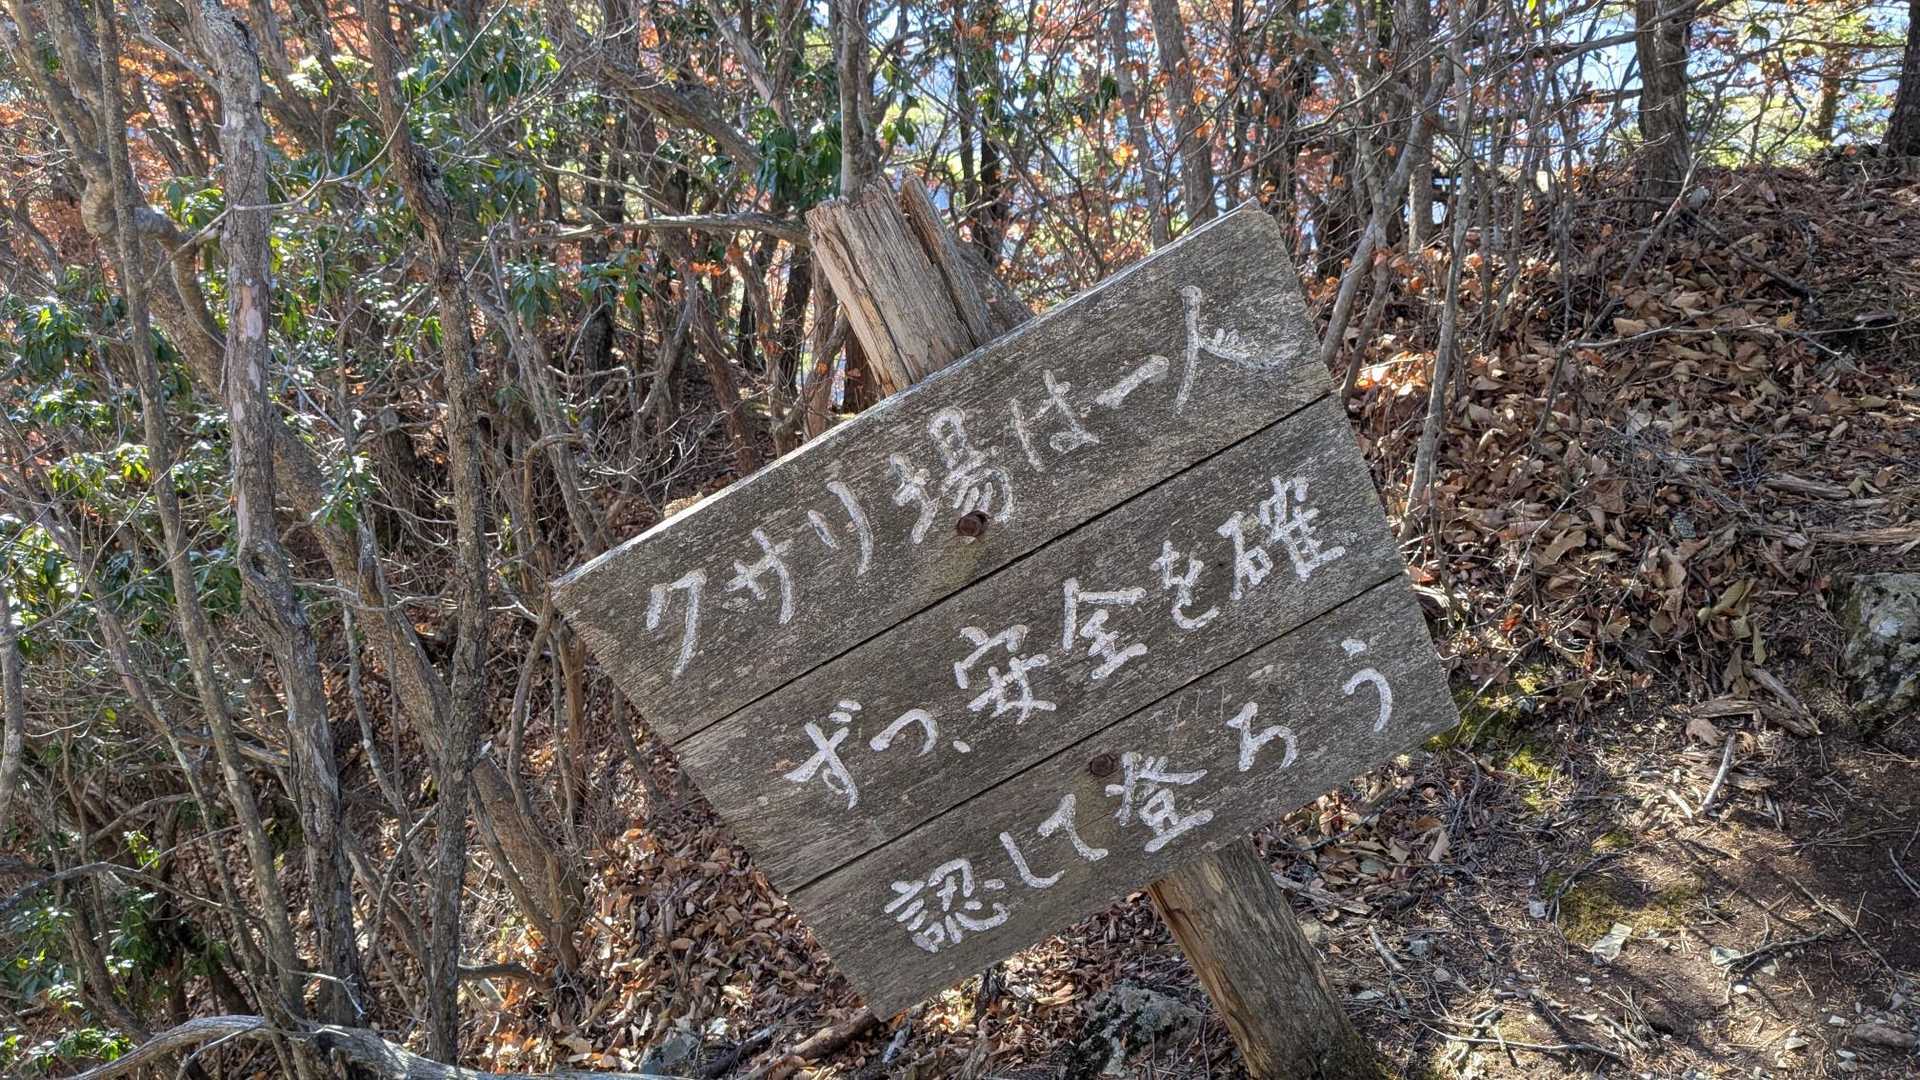 クサリ場は一人
ずつ、安全を確
認して登ろう